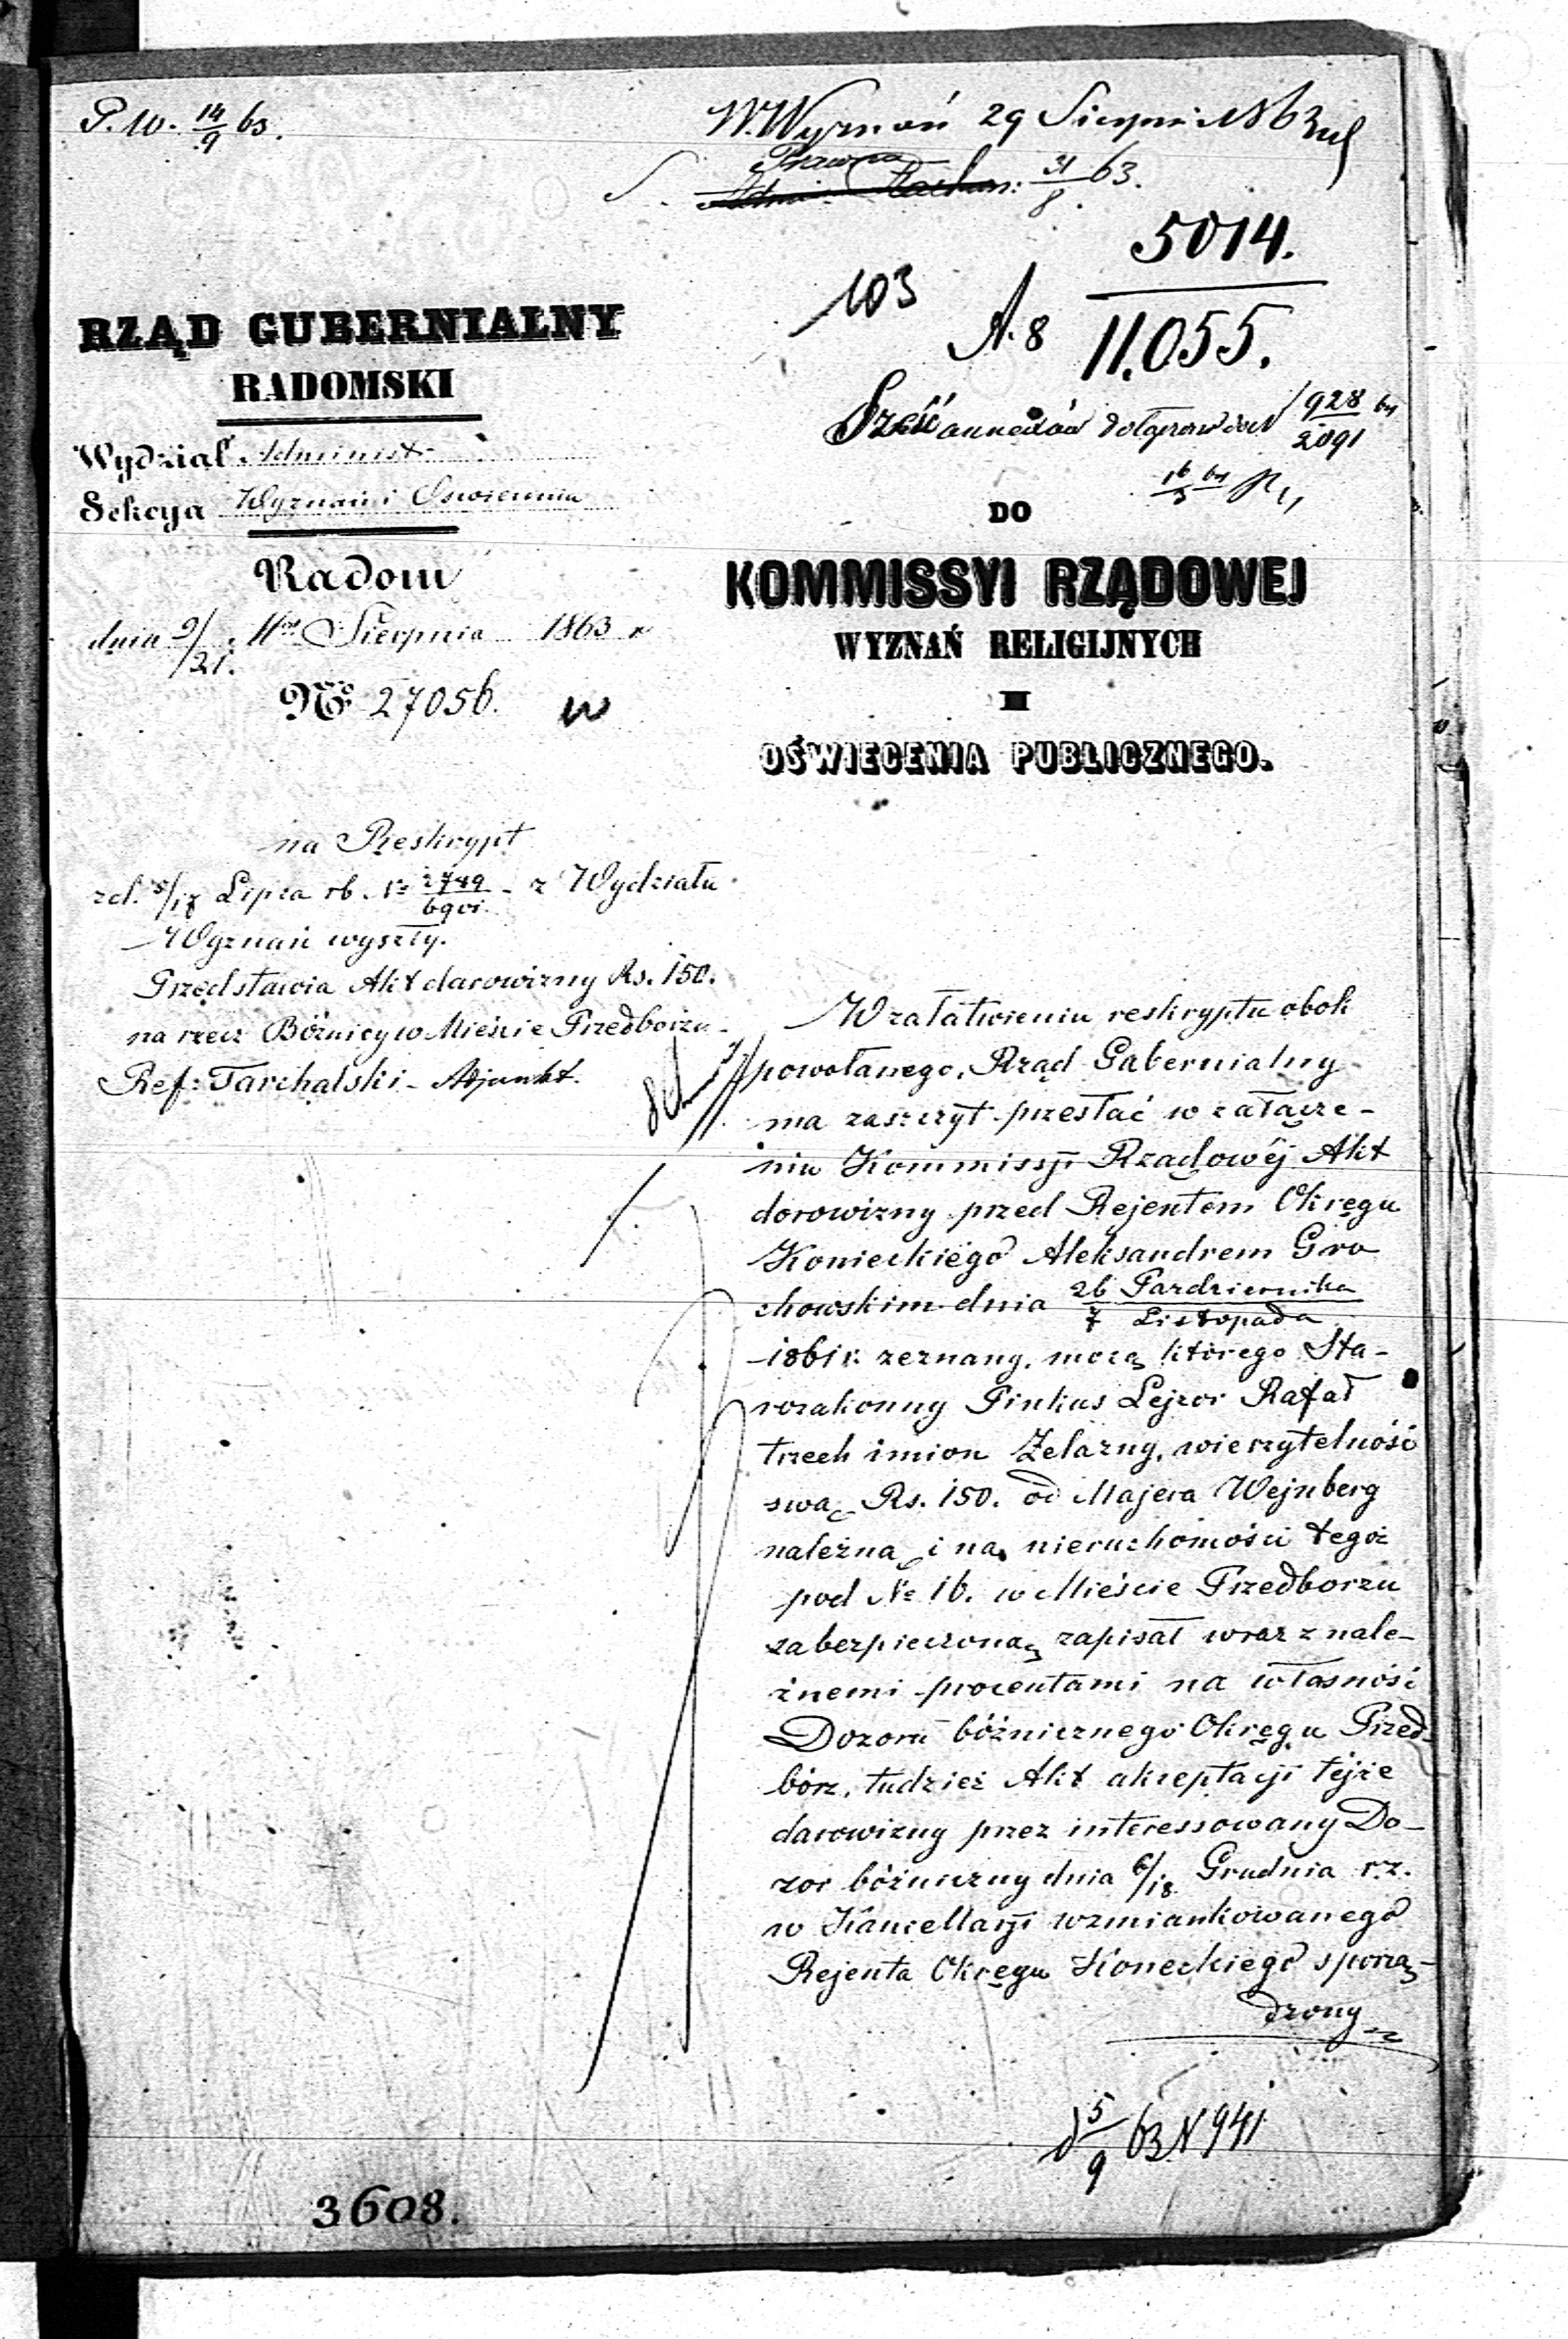 P. W. 14/9 63.
W. Wyznań 29 Sierpn: 1863
Prawna
31/8 63.
5014.
103
A. 8 11.055.
Sześć annexów do 1928/2091
16/3
RZĄD GUBERNIALNY
RADOMSKI
Wydział Administ:
Sekcya Wyznań i Oświecenia
Radom
dnia 9/21. Mca Sierpnia 1863 r
No 27056. W
DO
KOMMISSYI RZĄDOWEJ
WYZNAŃ RELIGIJNYCH
I
OŚWIECENIA PUBLICZNEGO.
na Reskrypt
zd. 5/17 Lipca rb. No 2749/6901 - z Wydziału
Wyznań wyszły.
Przedstawia Akt darowizny Rs. 150.
na rzecz Bóżnicy w Mieście Przedborzu.
Ref: Tarchalski - Adjunkt.
W załatwieniu reskryptu obok
powołanego, Rząd Gubernialny
ma zaszczyt przesłać w załącze-
niu Kommissyi Rządowéj Akt
dorowizny przed Rejentem Okręgu
Konieckiego Aleksandrem Gro
chowskim dnia 26 Pazdziernika / 7 Listopada
1861 r. zeznany, mocą którego Sta-
rozakonny Pinkus Lejzor Rafał
trzech imion Żelazny, wierzytelność
swą Rs. 150. od Majera Wejnberg
należną i na nieruchomości tegoż
pod No 16. w Mieście Przedborzu
zabezpieczoną zapisał wraz z nale-
żnemi procentami na własność
Dozoru bóżnicznego Okręgu Przed-
bórz, tudzież Akt akceptacji téjże
darowizny przez interessowany Do-
zor bóżniczny dnia 6/18 Grudnia r. z.
w Kancellaryi wzmiankowanego
Rejenta Okręgu Koneckiego sporzą-
dzony
d 5/9 63 N 941
3608.